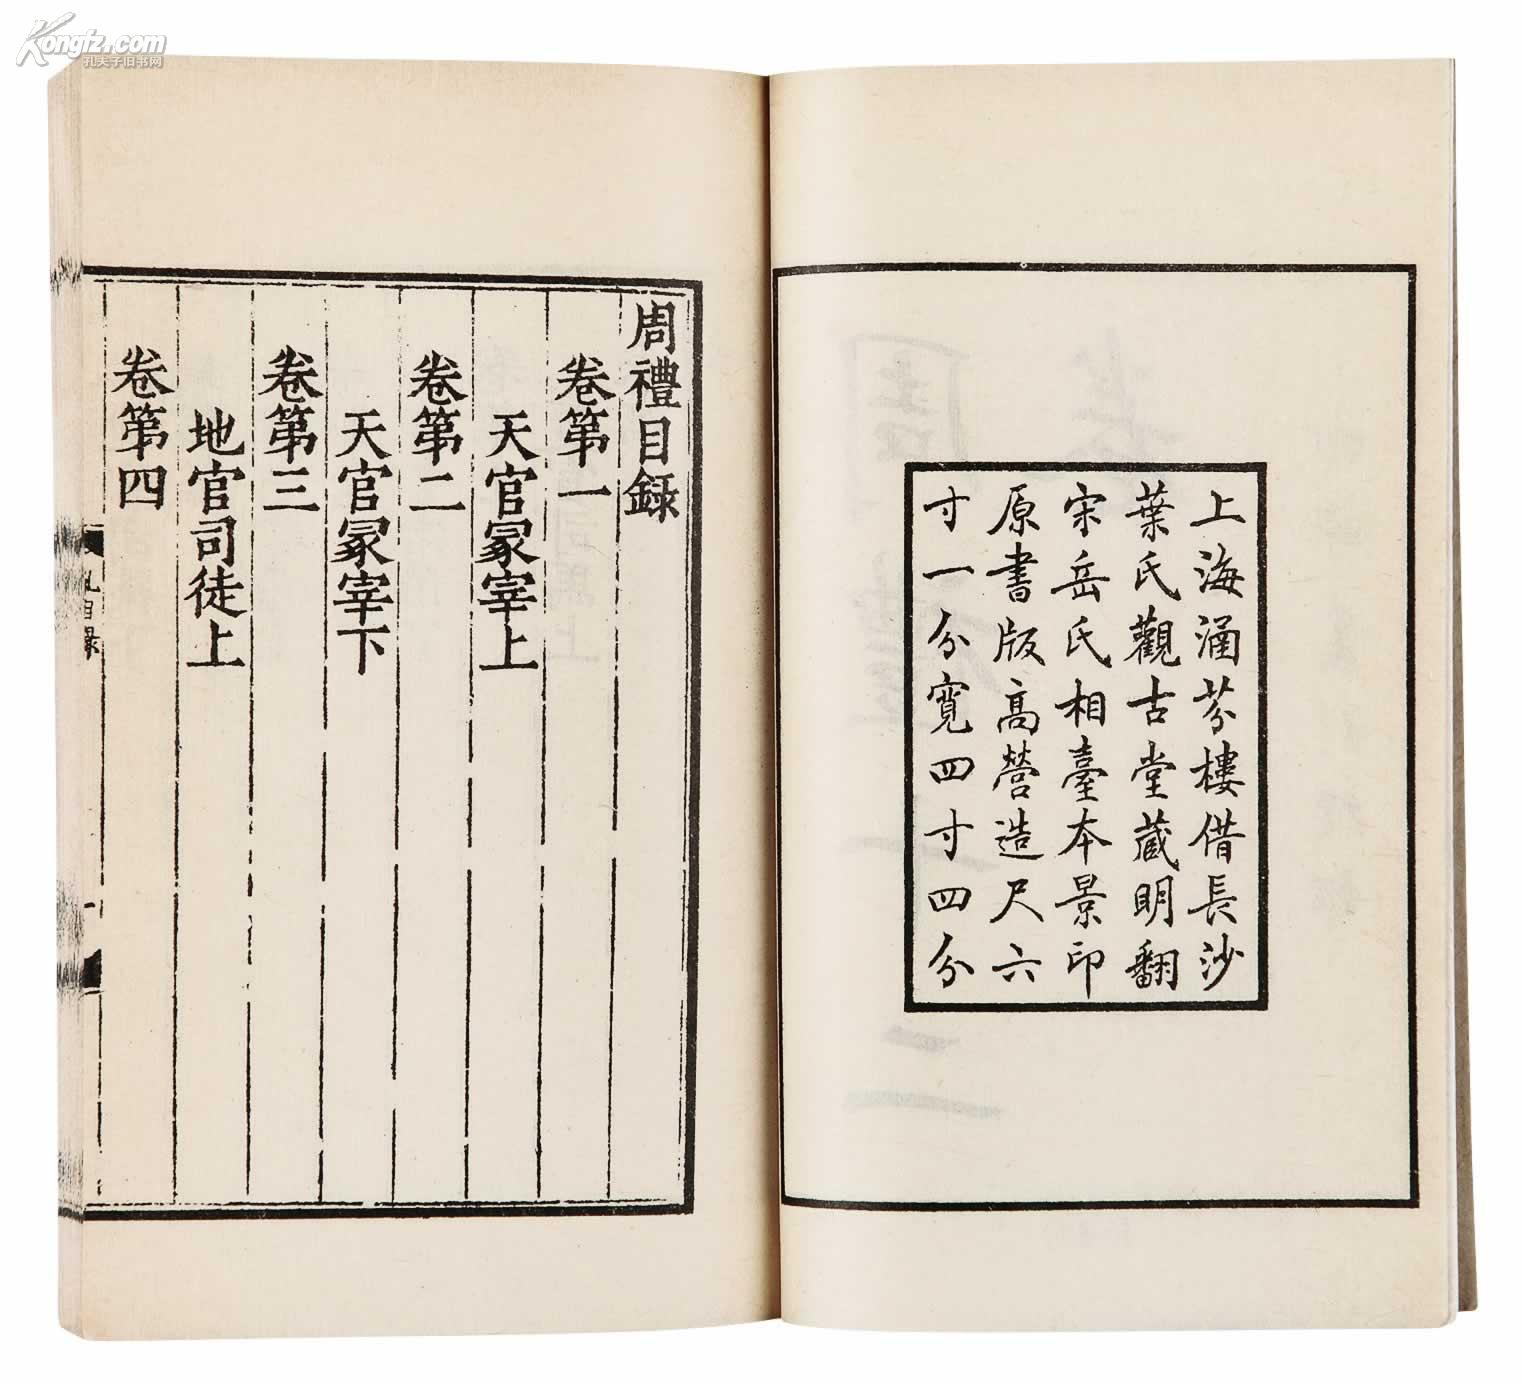 Kongfz.com
孔夫子旧书网
上海涵芬樓借長沙
葉氏觀古堂藏明翻
宋岳氏相臺本景印
原書版高營造尺六
寸一分寬四寸四分
周禮目録
卷第一
天官冢宰上
卷第二
天官冢宰下
卷第三
地官司徒上
卷第四